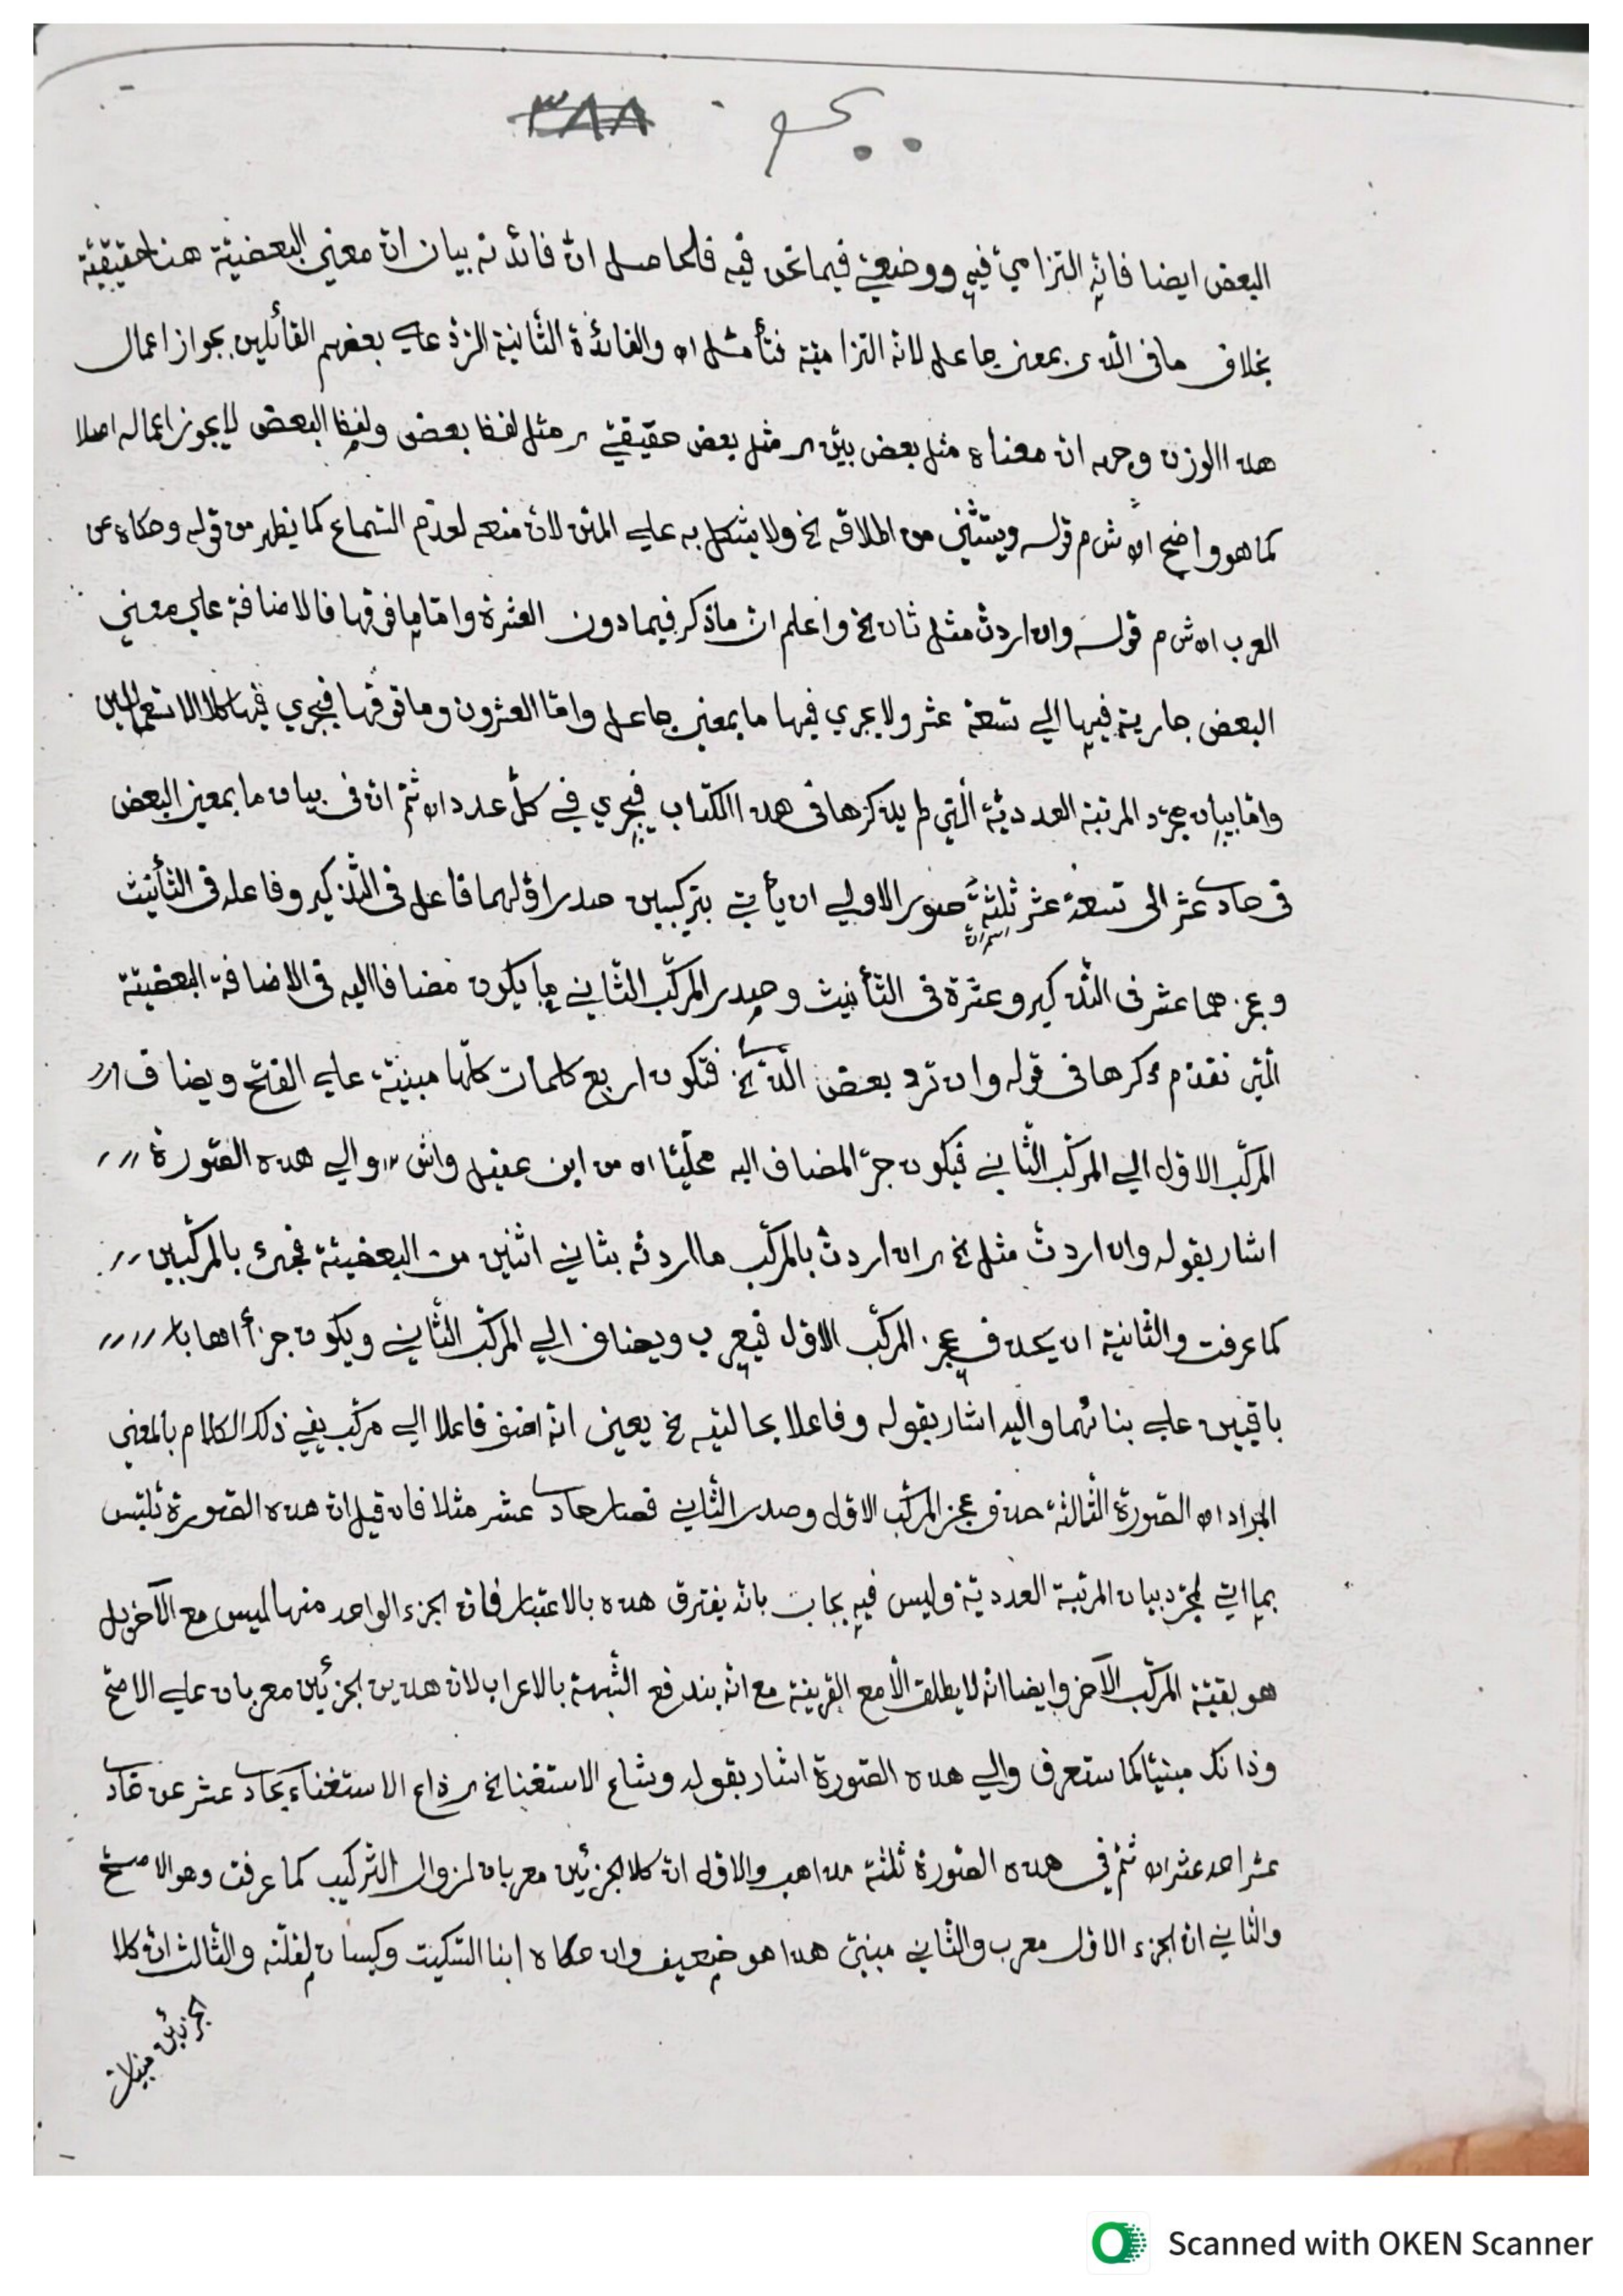 ٣٨٨
البعض ايضا فانّه التزاميّ فيه ووضعيّ فيما نحن فيه فالحاصل انّ فائدته بيان انّ معنى البعضيّة هنا حقيقيّة
بخلاف ما في الّذى بمعنى جاعل لانّه التزاميّة فتأمّل اه والفائدة الثّانية الردّ على بعضهم القائلين بجواز اعمال
هذا الوزن وجه انّ معناه مثل بعض بيّن اى مثل بعض حقيقيّ اى مثل لفظ بعض ولفظ البعض لا يجوز اعماله اصلا
كما هو واضح اه ش م قوله ويستثنى من اطلاقه الخ ولا يشكل به على المتن لانّ منعه لعدم السّماع كما يظهر من قوله وحكاه عن
العرب اه ش م قوله وان اردت مثل ثان الخ واعلم انّ ما ذكر فيما دون العشرة وامّا ما فوقها فالاضافة على معنى
البعض جارية فيها الي تسعة عشر ولا يجري فيها ما بمعنى جاعل وامّا العشرون وما فوقها فيجري فيها كلا الاستعمالين
وامّا بيان مجرّد المرتبة العدديّة الّتي لم يذكرها في هذا الكتاب فيجري في كلّ عدد اه ثمّ انّ في بيان ما بمعنى البعض
في حاد عشر الى تسعة عشر ثلثة صور الاولي ان يأتي بتركيبين صدر اوّلهما فاعل في التّذكير وفاعلة في التّأنيث
وعجزهما عشر في التّذكير وعشرة في التّأنيث وصدر المركّب الثّاني ما يكون مضافا اليه في الاضافة البعضيّة
الّتي تقدّم ذكرها في قوله وان ترد بعض الّذي الخ فتكون اربع كلمات كلّها مبنيّة علي الفتح ويضاف
المركّب الاوّل الي المركّب الثّاني فيكون جرّ المضاف اليه محلّيّا اه من ابن عقيل واش والي هذه الصّورة
اشار بقوله وان اردت مثل الخ اى ان اردت بالمركّب ما اردته بثاني اثنين من البعضيّة فجئ بالمركّبين
كما عرفت والثانية ان يحذف عجز المركّب الاوّل فيعرب ويضاف الي المركّب الثّاني ويكون جزأ اها
باقيين علي بنائهما واليه اشار بقوله وفاعلا بحالتيه الخ يعنى انّه اضف فاعلا الي مركّب يفي ذلك الكلام بالمعني
المراد اه الصّورة الثّالثة حذف عجز المركّب الاوّل وصدر الثّاني فصار حاد عشر مثلا فان قيل انّ هذه الصّورة تلتبس
بما اتي لمجرّد بيان المرتبة العدديّة وليس فيه يجاب بانّه يفترق هذه بالاعتبار فانّ الجزء الواحد منها ليس مع الآخر بل
هو بقيّة المركّب الآخر وايضا انّه لا يطلق الّا مع القرينة مع انّه يندفع الشّبهة بالاعراب لانّ هذين الجزئين معربان علي الاصحّ
وذانك مبنيّا كما ستعرف والي هذه الصّورة اشار بقوله وشاع الاستغنا الخ اى ذاع الاستغناء بحاد عشر عن حاد
عشر احد عشر اه ثمّ في هذه الصّورة ثلثة مذاهب والاوّل انّ كلا الجزئين معربان لزوال التّركيب كما عرفت وهو الاصحّ
والثّاني انّ الجزء الاوّل معرب والثّاني مبنيّ هذا هو ضعيف وان حكاه ابنا السّكيت وكيسان لقلّته والثّالث انّ كلا
الجزئين مبنيان
Scanned with OKEN Scanner